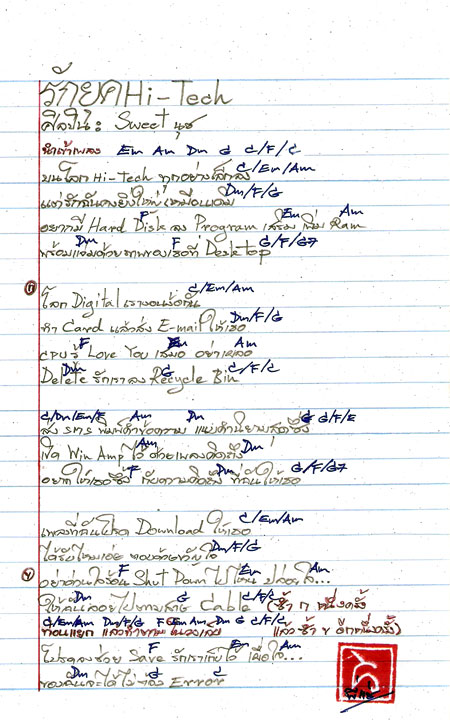 รักยุค Hi-Tech
ศิลปิน: Sweet นุช
นำเข้าเพลง Em Am Dm G C/F/C
C/Em/Am
บนโลก Hi-Tech ทุกอย่างเล็กลง
Dm/F/G
แต่รักฉันคงยิ่งใหญ่เหมือนเดิม
F Em Am
อยากมี Hard Disk ลง Program เสริม เพิ่ม Ram
Dm F G/F/G7
พร้อมแจมด้วยภาพของเธอที่ Desktop
ก C/Em/Am
โลก Digital เราจอมือกัน
Dm/F/G
ทำ Card แล้วส่ง E-mail ให้เธอ
F Em Am
CPU รู้ Love You เสมอ อย่าเผลอ
Dm G C/F/C
Delete รักเราลง Recycle Bin
C/Dm/Em/F Am Dm G G/F/E
ส่ง SMS พิมพ์เข้าข้อความ แบ่งคำนิยามสุดซึ้ง
Am Dm
เปิด Win Amp ไว้ ด้วยเพลงคิดถึง
F Dm G/F/G7
อยากให้เธอซึ้ง กับความคิดถึง ที่ฉันให้เธอ
C/Em/Am
เพลงที่ฉันโหลด Download ให้เธอ
Dm/F/G
ได้รับไหมเออ ของขวัญใจ
ข F Em Am
อย่าด่วนใจร้อน Shut Down ไปไหน ปล่อยใจ...
Dm G C/F/C
ให้ฉันลอยไปตามสาย Cable (ซ้ำ ก หนึ่งครั้ง
C/Em/Am Dm/F/G F Em Am Dm G C/F/C
ท่อนแยก แล้วซ้ำ แล้วซ้ำ ข อีกหนึ่งครั้ง)
F Em Am
โปรดลงช่วย Save รักเราเก็บไว้ เผื่อใจ...
Dm G C
ของฉันจะได้ไม่ต้อง Error